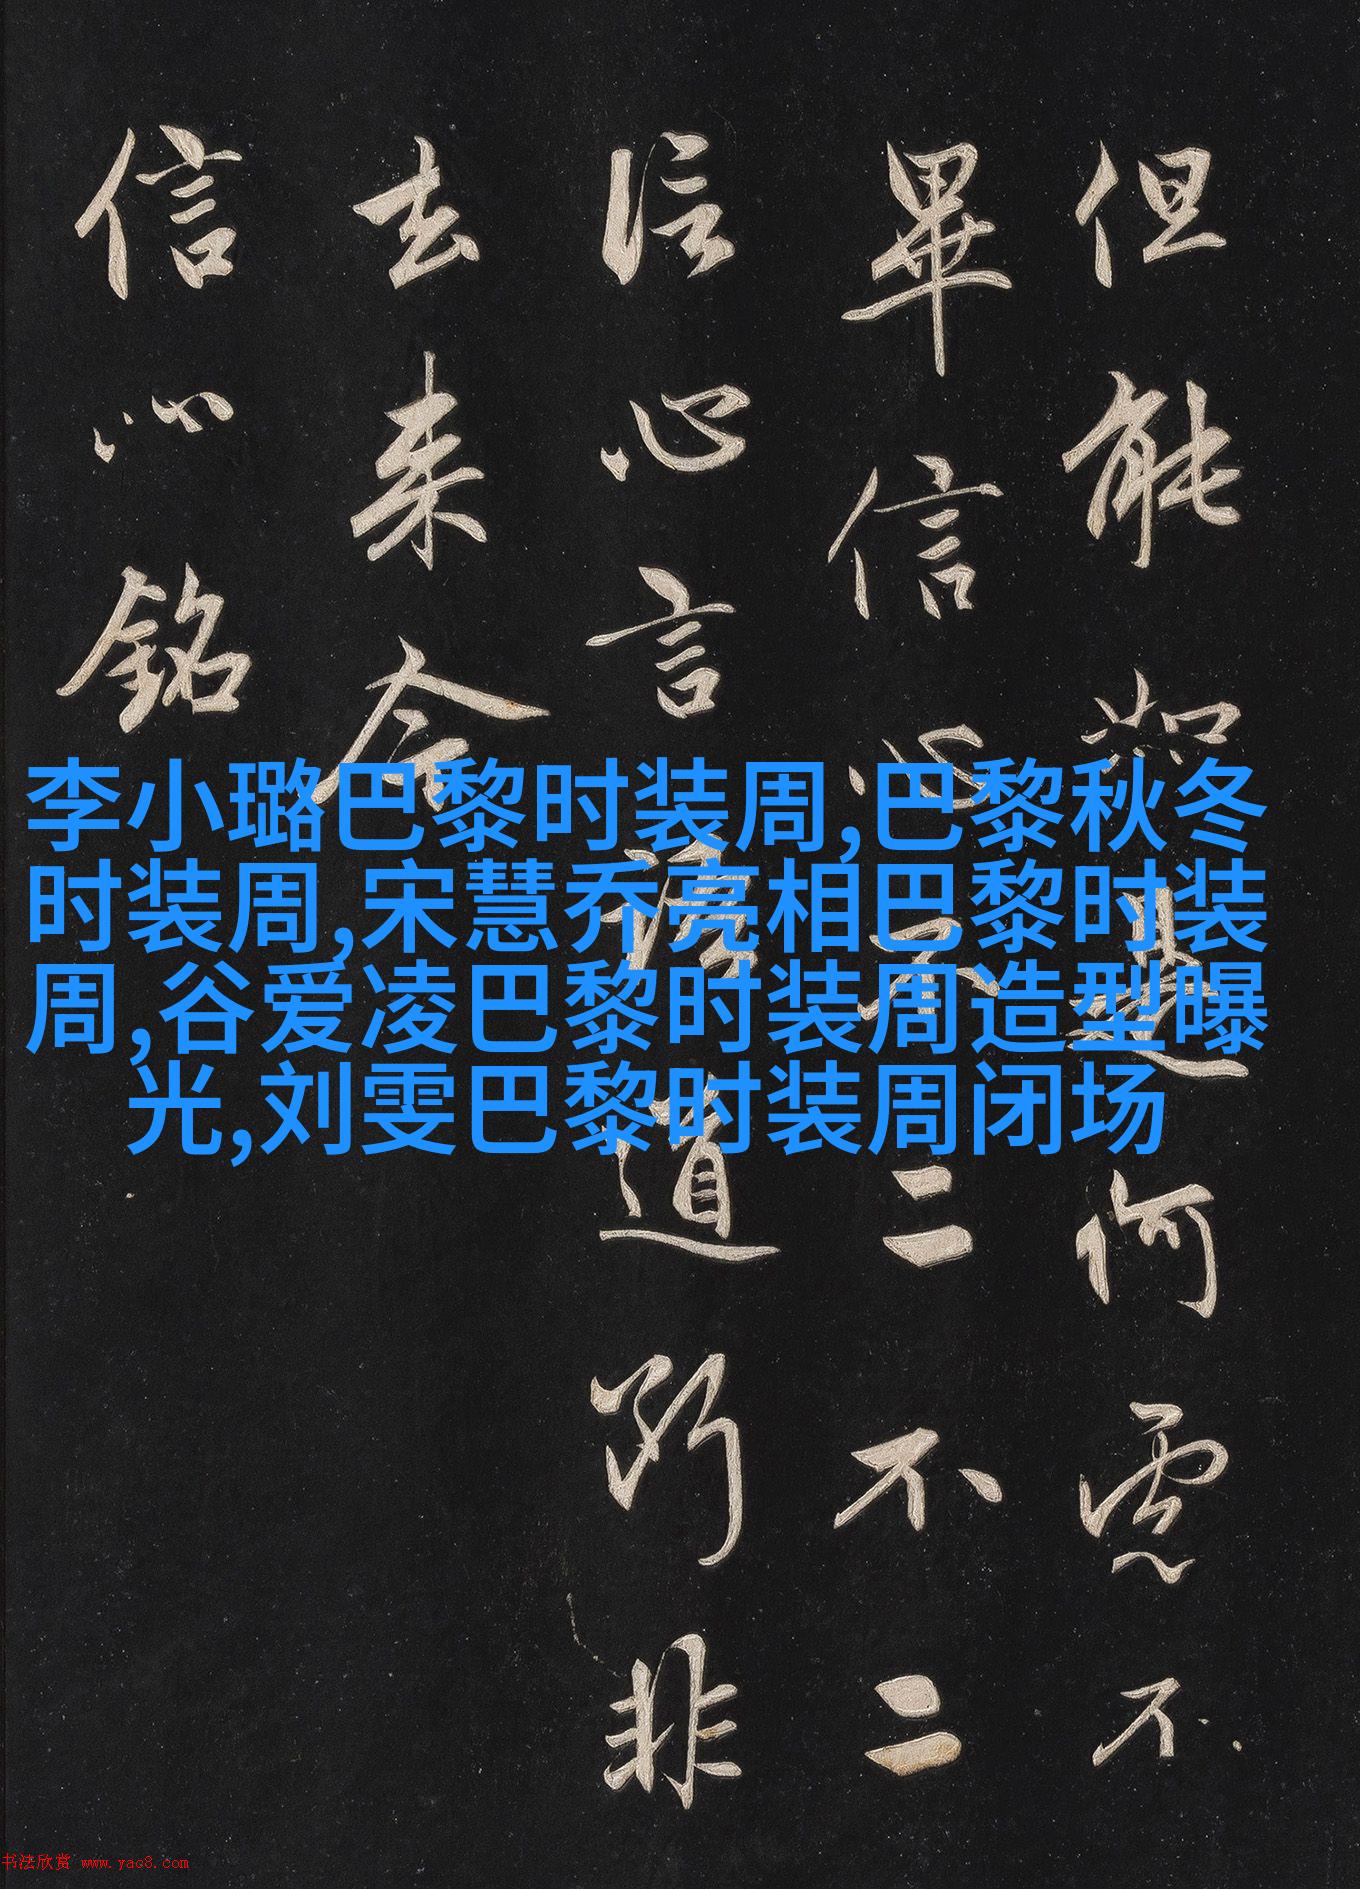 但能如是何慮不
畢信心不二不二
信心言語道斷非
去来今
信心銘
李小璐巴黎时装周,巴黎秋冬
时装周,宋慧乔亮相巴黎时装
周,谷爱凌巴黎时装周造型曝
光,刘雯巴黎时装周闭场
书法欣赏 www.yac8.com